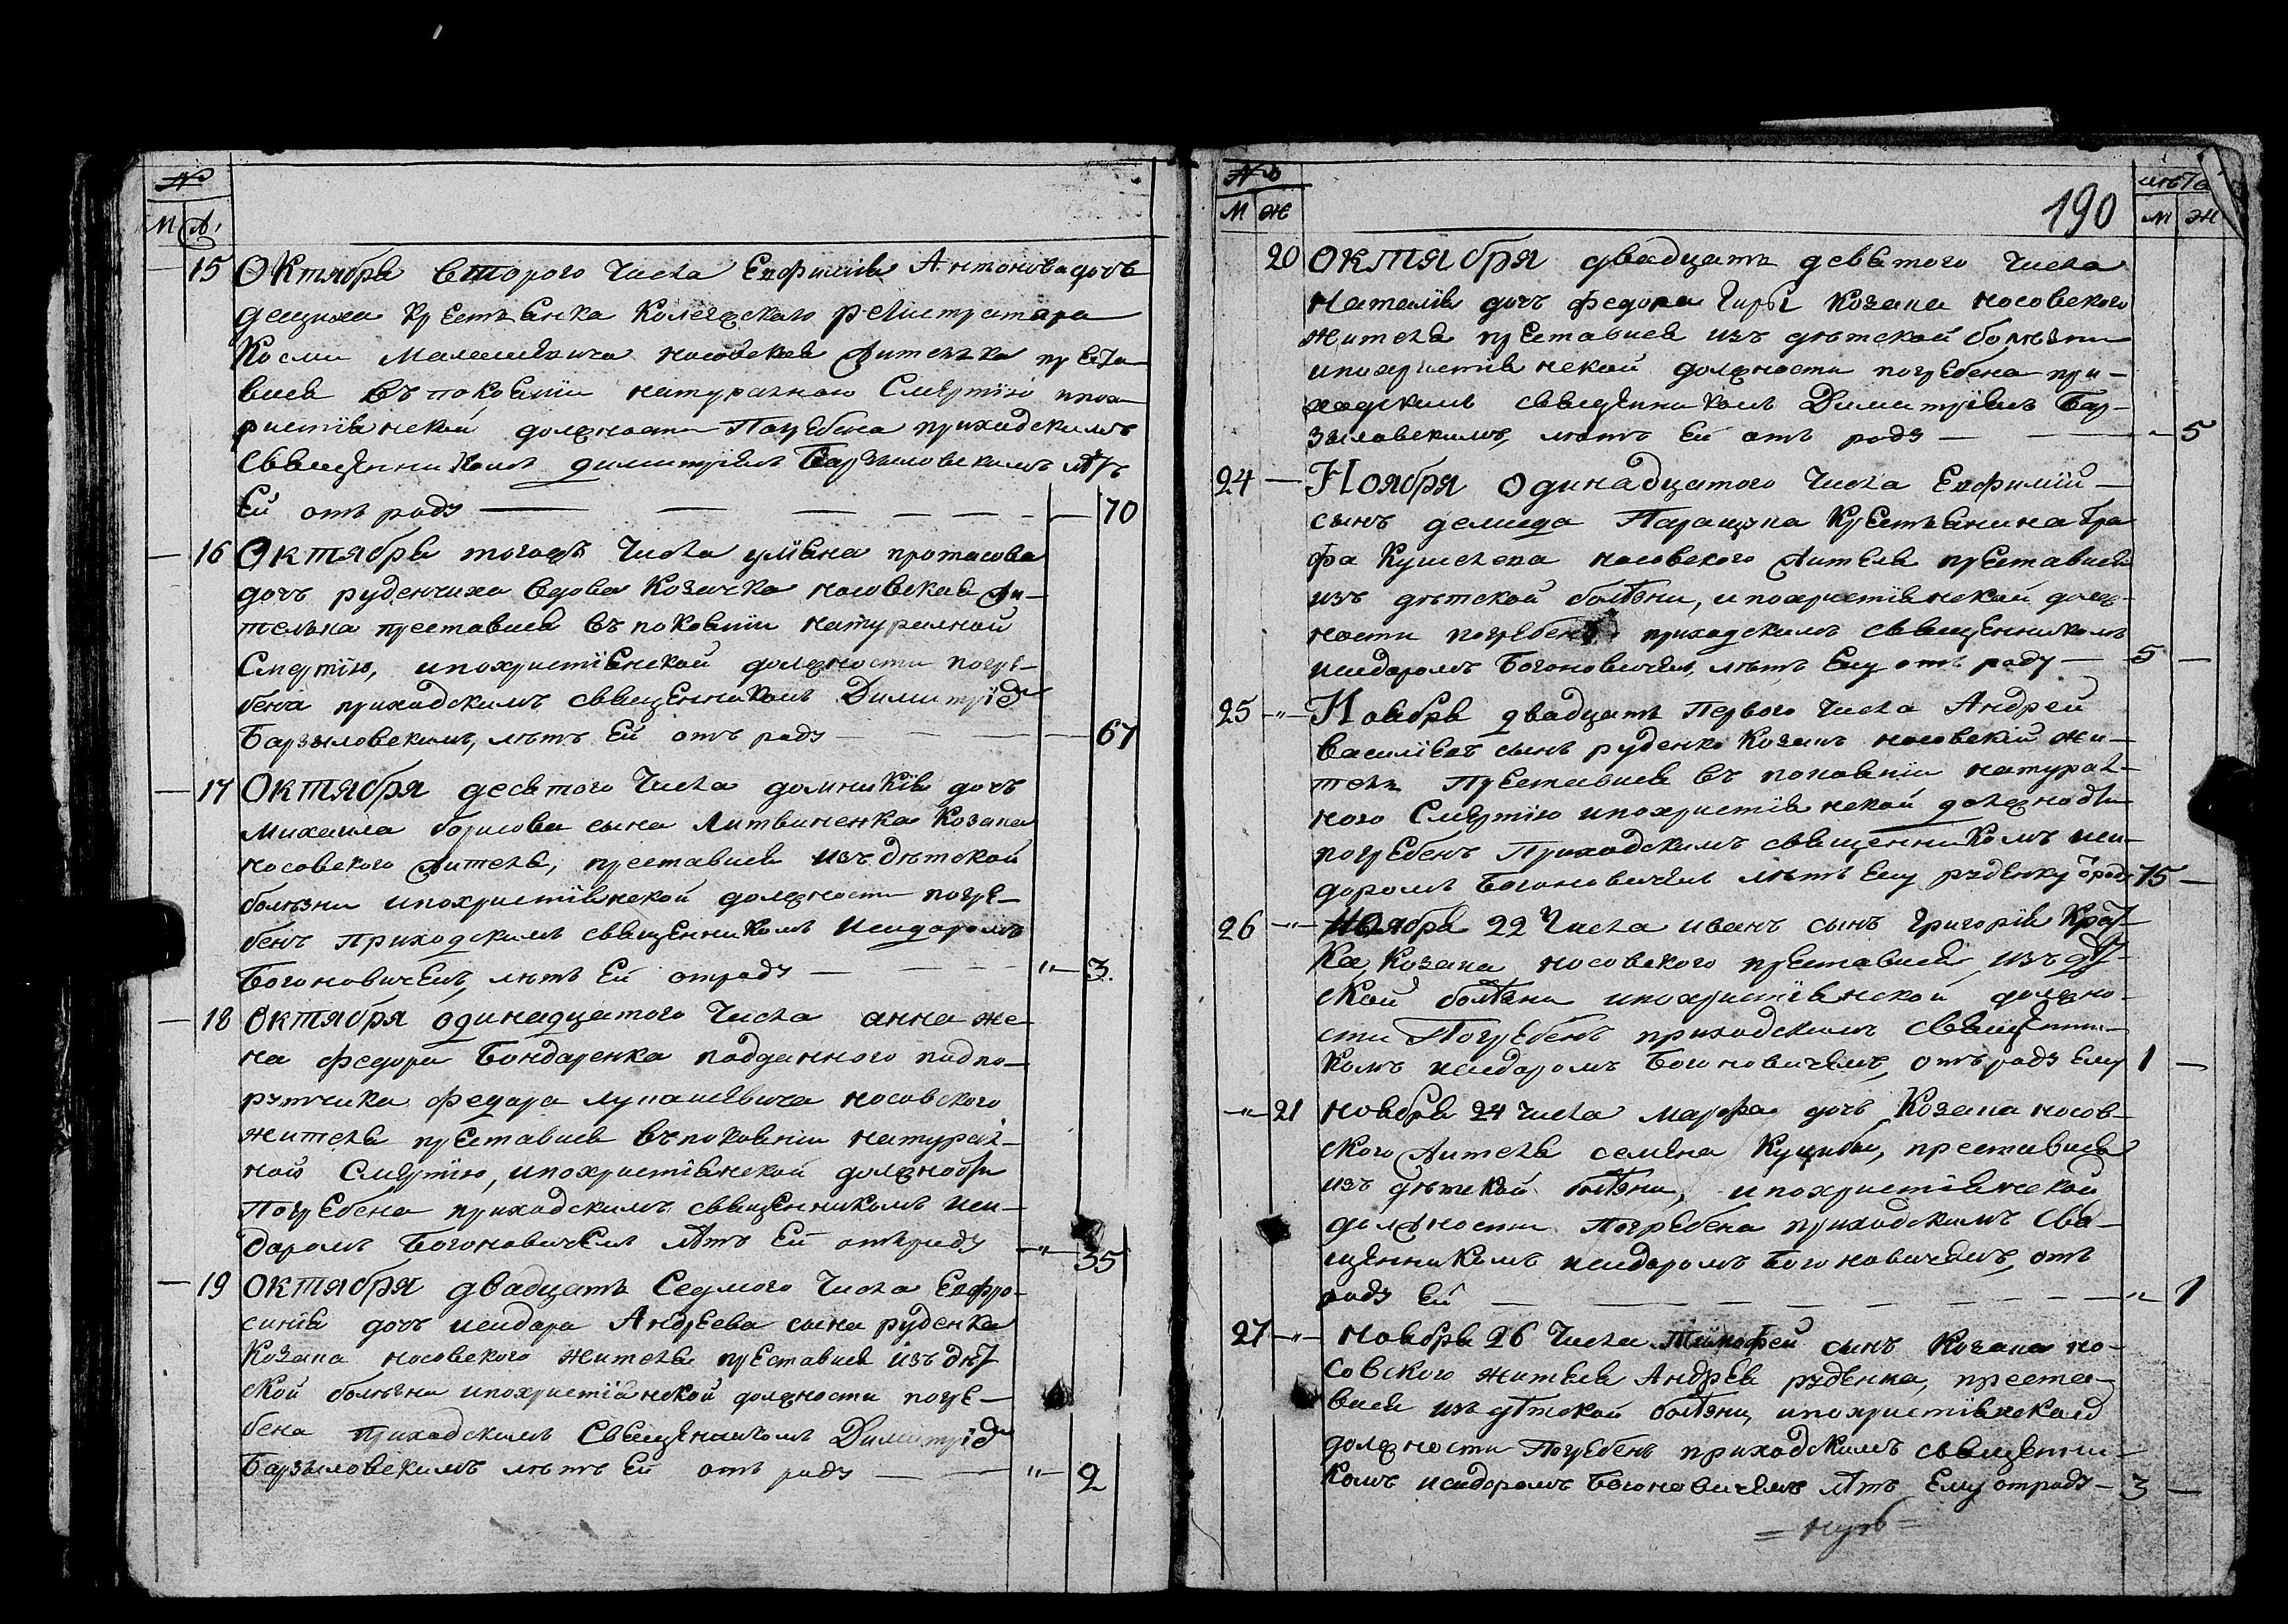 №
М Ж
15 Октября второго числа Евфимия Антонова дочъ
крестьянка колежского регистратора
Косми носовская жителка преста
вися въ покоянии натуралною смертию ипох
ристиянской должности Погребена приходскимъ
священникомъ димитриемъ Барзыловскимъ лѣтъ
Ей отъ роду — 70
— 16 Октября тогожъ числа улияна протасова
дочъ руденчиха вдова козачка носовская жи-
телька преставися въ покоянии натуралной
Смертию, ипохристиянской должности погре-
бена приходскимъ священникомъ Димитрие
Барзыловскимъ, лѣтъ Ей отъ роду — 67
— 17 Октября десятого числа домникия дочъ
михаила борисова сына Литвиненка козака
носовского жителя, преставися изъ дѣтской
болѣзни ипохристиянской должности погре-
бенъ приходскимъ священникомъ Исидоромъ
Богоновичемъ, лѣтъ Ей отроду — " — 3.
— 18 Октября одинадцатого числа анна же-
на федора Бондаренка подданного подпо-
рутчика федора лукашевича носовского
жителя преставися въ покоянии натурал-
ной Смертию, ипохристиянской должности
Погребена приходскимъ священникомъ иси-
доромъ Богоновичемъ лѣтъ Ей отъ роду — " — 35
— 19 Октября двадцать Седмого числа Евфро-
синия дочъ исидора Андреева сына руденка
козака носовского жителя преставися изъ дѣт
ской болѣзни ипохристиянской должности погре-
бена приходскимъ Священникомъ Димитрие
Барзыловскимъ лѣтъ Ей отъ роду — " — 2
№ лѣта
М Ж 190 М Ж
20 Октября двадцать девятого числа
Наталия дочъ федора козака носовского
жителя преставися изъ дѣтской болѣзни
ипохристиянской должности погребена при-
ходскимъ священникомъ Димитриемъ Бар-
зыловскимъ, лѣтъ Ей отъ роду — " — 5
24 — Ноября Одинадцатого числа Евфимий —
сынъ демида Паращука крестьянина гра
фа носовского жителя преставися
изъ дѣтской болѣзни, ипохристиянской долж-
ности погребенъ приходскимъ священникомъ
исидоромъ Богоновичемъ, лѣтъ Ему отъ роду — 5 —
25 — " — Ноября двадцать Первого числа Андрей
василиевъ сынъ руденко козакъ носовский жи-
тель Преставися въ покоянии натурал-
ного Смертию ипохристиянской должности
погребенъ Приходскимъ священникомъ иси-
доромъ Богоновичемъ лѣтъ Ему руденку ѿроду 75 —
26 — " — Ноября 22 числа иванъ сынъ григория
ка, козака носовского преставися изъ дѣт-
ской болѣзни ипохристиянской должно-
сти Погребенъ приходскимъ священни-
комъ исидоромъ Богоновичемъ, отъ роду Ему 1 —
— " — 21 ноября 24 числа марфа дочъ козака носов-
ского жителя семена преставися
изъ дѣтской болѣзни, ипохристиянской
должности Погребена приходскимъ свя-
щенникомъ исидоромъ Богоновичемъ, отъ
роду Ей — " — 1
27 — " — ноября 26 числа Тимофей сынъ козака но-
совского жителя Андрея руденка, преста-
вися изъ дѣтской болѣзни, ипохристиянской
должности Погребенъ приходскимъ священни-
комъ исидоромъ Богоновичемъ лѣтъ Ему отроду — 3 —